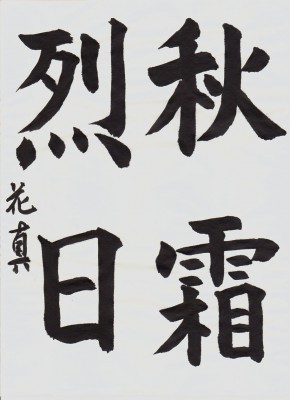 秋霜
烈日
花真